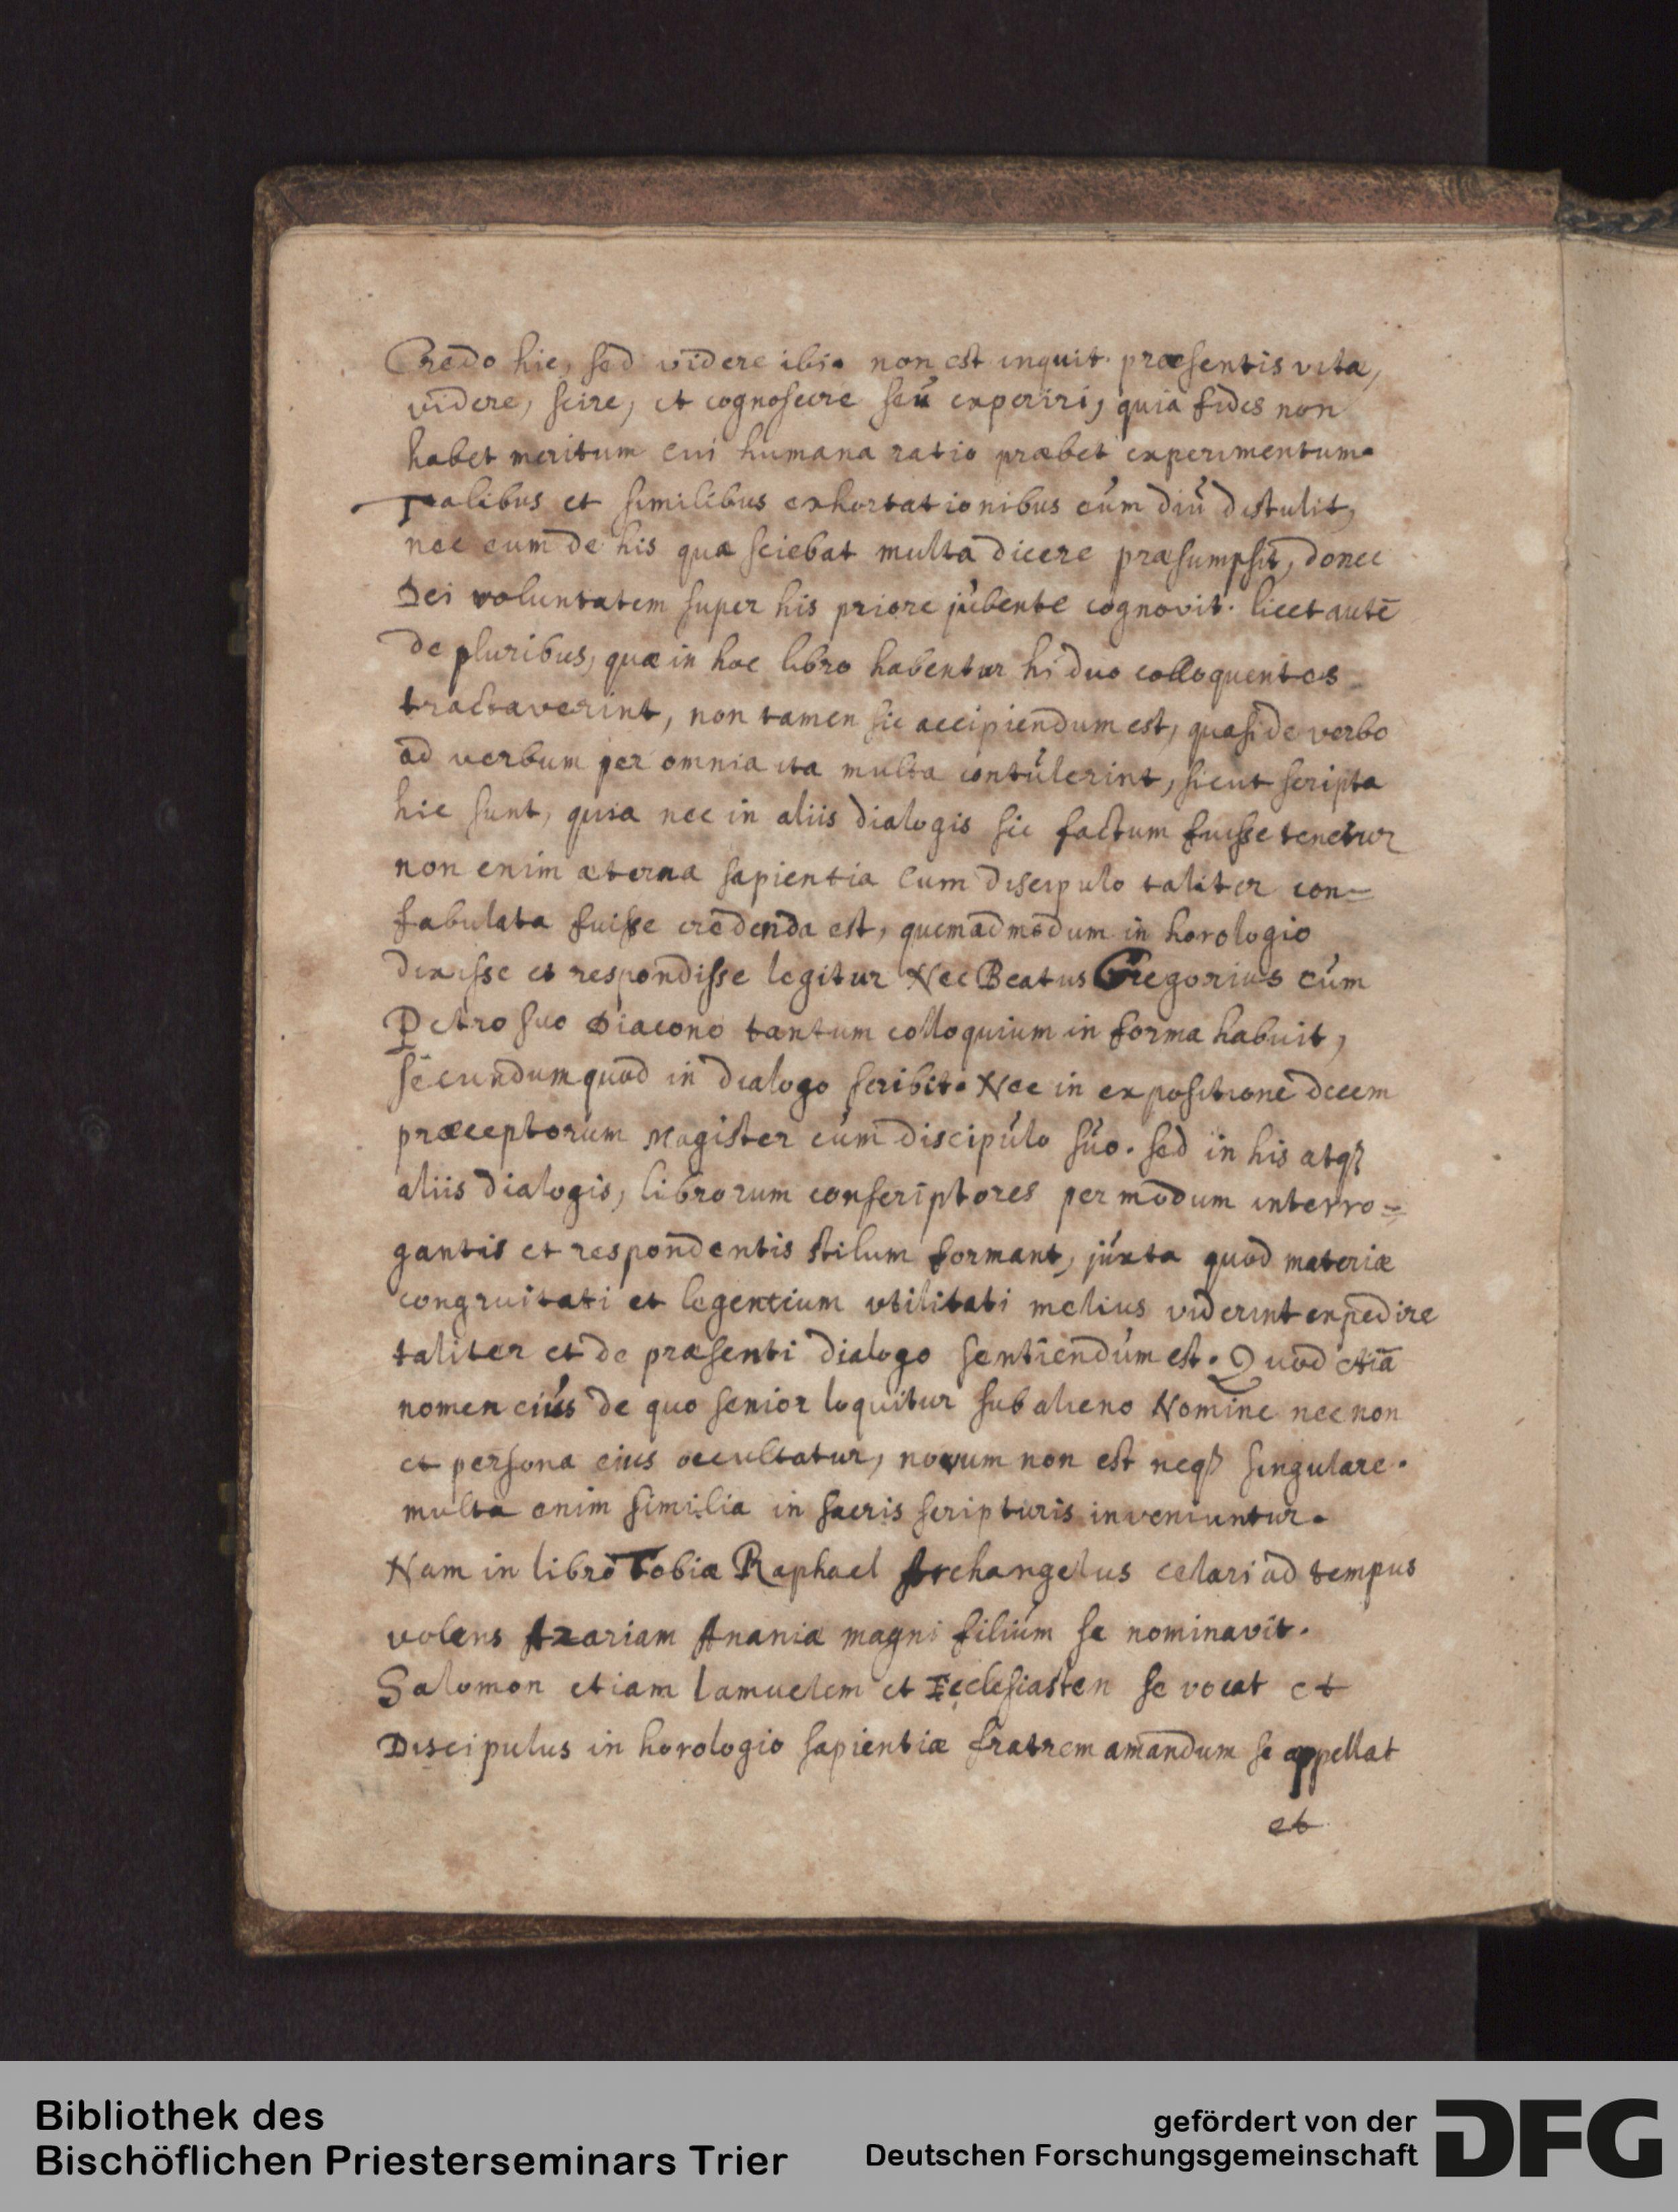 Credo hic, sed videre ibi. non est inquit. præsentis vitæ,
videre, scire, et cognoscere seú experiri, quia fides non
habet meritum cui humana ratio præbet experimentum.
Talibus et similibus exhortationibus cúm diú distulit,
nec eum de his quæ sciebat multa dicere præsumpsit, donec
Dei voluntatem super his priore júbente cognovit. licet autē
de pluribus, quæ in hoc libro habentur hi duo colloquentes
tractaverint, non tamen sic accipiendum est, quasi de verbo
ad verbum per omnia ita multa contúlerint, sicut scripta
hic sunt, quia nec in aliis dialogis sic factum fuisse tenetur
non enim æterna sapientia cum discipulo taliter con-
fabulata fuisse credenda est, quemadmodum in horologio
dixisse et respondisse legitur Nec Beatus Gregorius cúm
Petro suo Diacono tantum colloquium in forma habuit,
secundum quod in dialogo scribit. Nec in expositione decem
præceptorum Magister cúm discipúlo súo. sed in his atqꝫ
aliis dialogis, librorum conscriptores per modum interro=
gantis et respondentis stilum formant, júxta quod materiæ
congruitati et legentium vtilitati melius viderint expedire
taliter et de præsenti dialogo sentiendúm est. Quod etiā
nomen eiús de quo senior loquitur sub alieno Nomine nec non
et persona eius occultatur, novum non est neqꝫ singulare.
multa enim similia in sacris scripturis inveniuntur.
Nam in libro Tobiæ Raphael Archangelus celari ad tempus
volens Azariam Ananiæ magni filiúm se nominavit.
Salomon etiam Lamuelem et Ecclesiasten se vocat et
Discipulus in horologio sapientiæ fratrem amandum se appellat
et
Bibliothek des
Bischöflichen Priesterseminars Trier
gefördert von der
Deutschen Forschungsgemeinschaft
DFG